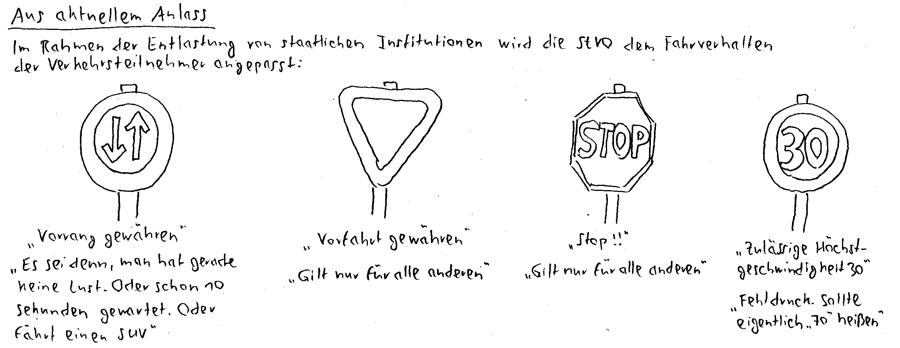 Aus aktuellem Anlass
Im Rahmen der Entlastung von staatlichen Institutionen wird die StVO dem Fahrverhalten
der Verkehrsteilnehmer angepasst:
STOP
30
„Vorrang gewähren"
„Es sei denn, man hat gerade
keine Lust. Oder schon 10
Sekunden gewartet. Oder
fährt einen SUV"
„Vorfahrt gewähren"
„Gilt nur für alle anderen"
„Stop!!"
„Gilt nur für alle anderen"
„Zulässige Höchst-
geschwindigkeit 30"
„Fehldruck. Sollte
eigentlich „70" heißen"